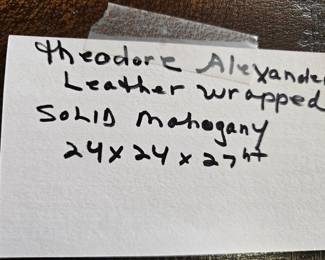 Theodore Alexander
Leather wrapped
SOLID mahogany
24 x 24 x 27 ht